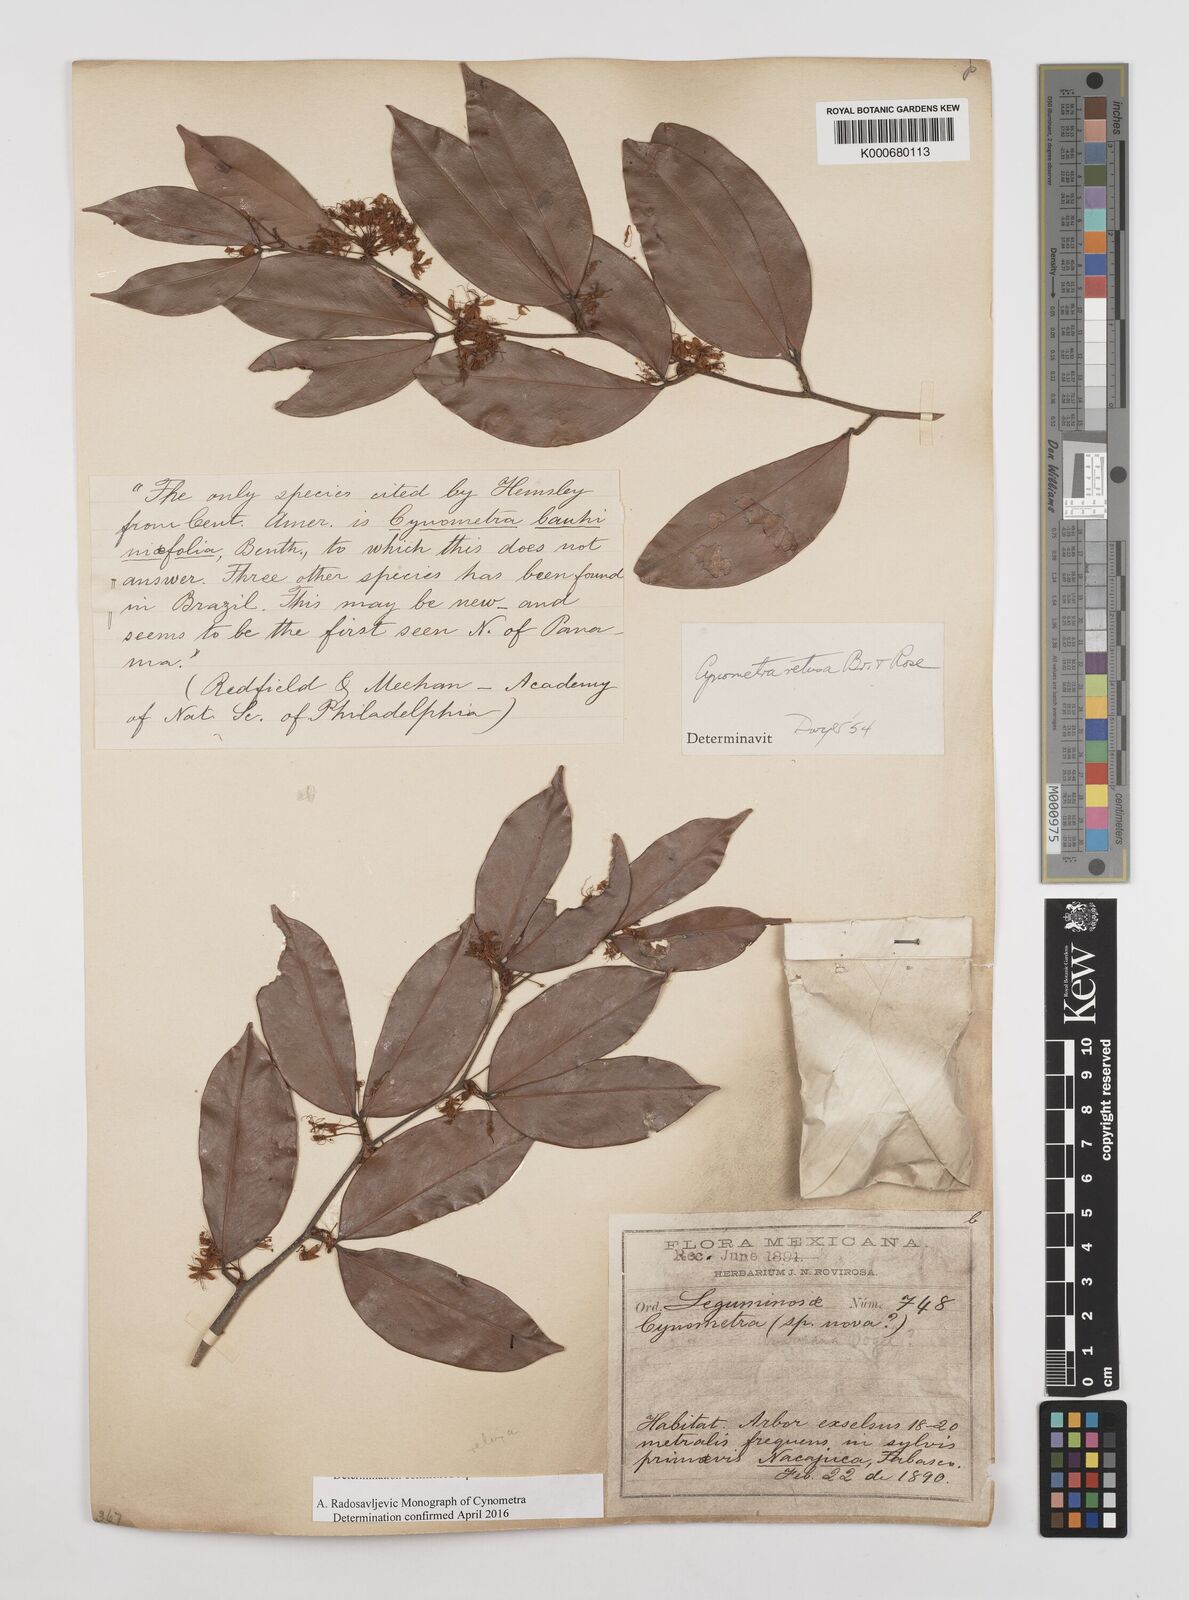 ROYAL BOTANIC GARDENS KEW
K000680113
"The only species cited by Hemsley
from Cent. Amer. is Cynometra bauhi
niæfolia, Benth., to which this does not
answer. Three other species has been found
in Brazil. This may be new - and
seems to be the first seen N. of Pana-
ma."
(Redfield & Meehan - Academy
of Nat. Sc. of Philadelphia)
Cynometra retusa Br. & Rose
Determinavit Dwyer 54
FLORA MEXICANA.
Rec. June 1891.
HERBARIUM J. N. ROVIROSA.
Ord. Leguminosæ Núm. 748
Cynometra (sp. nova?)
Habitat. Arbor exselsus 18-20
metralis frequens in sylvis
primævis Nacajuca, Tabasco.
Feb. 22 de 1890.
retusa
A. Radosavljevic Monograph of Cynometra
Determination confirmed April 2016
367
inches
centimeters
Density
Don Williams
M000975
Kew
Royal Botanic Gardens
copyright reserved
0 1 2 3 4 5 6 7 8 9 10
cm